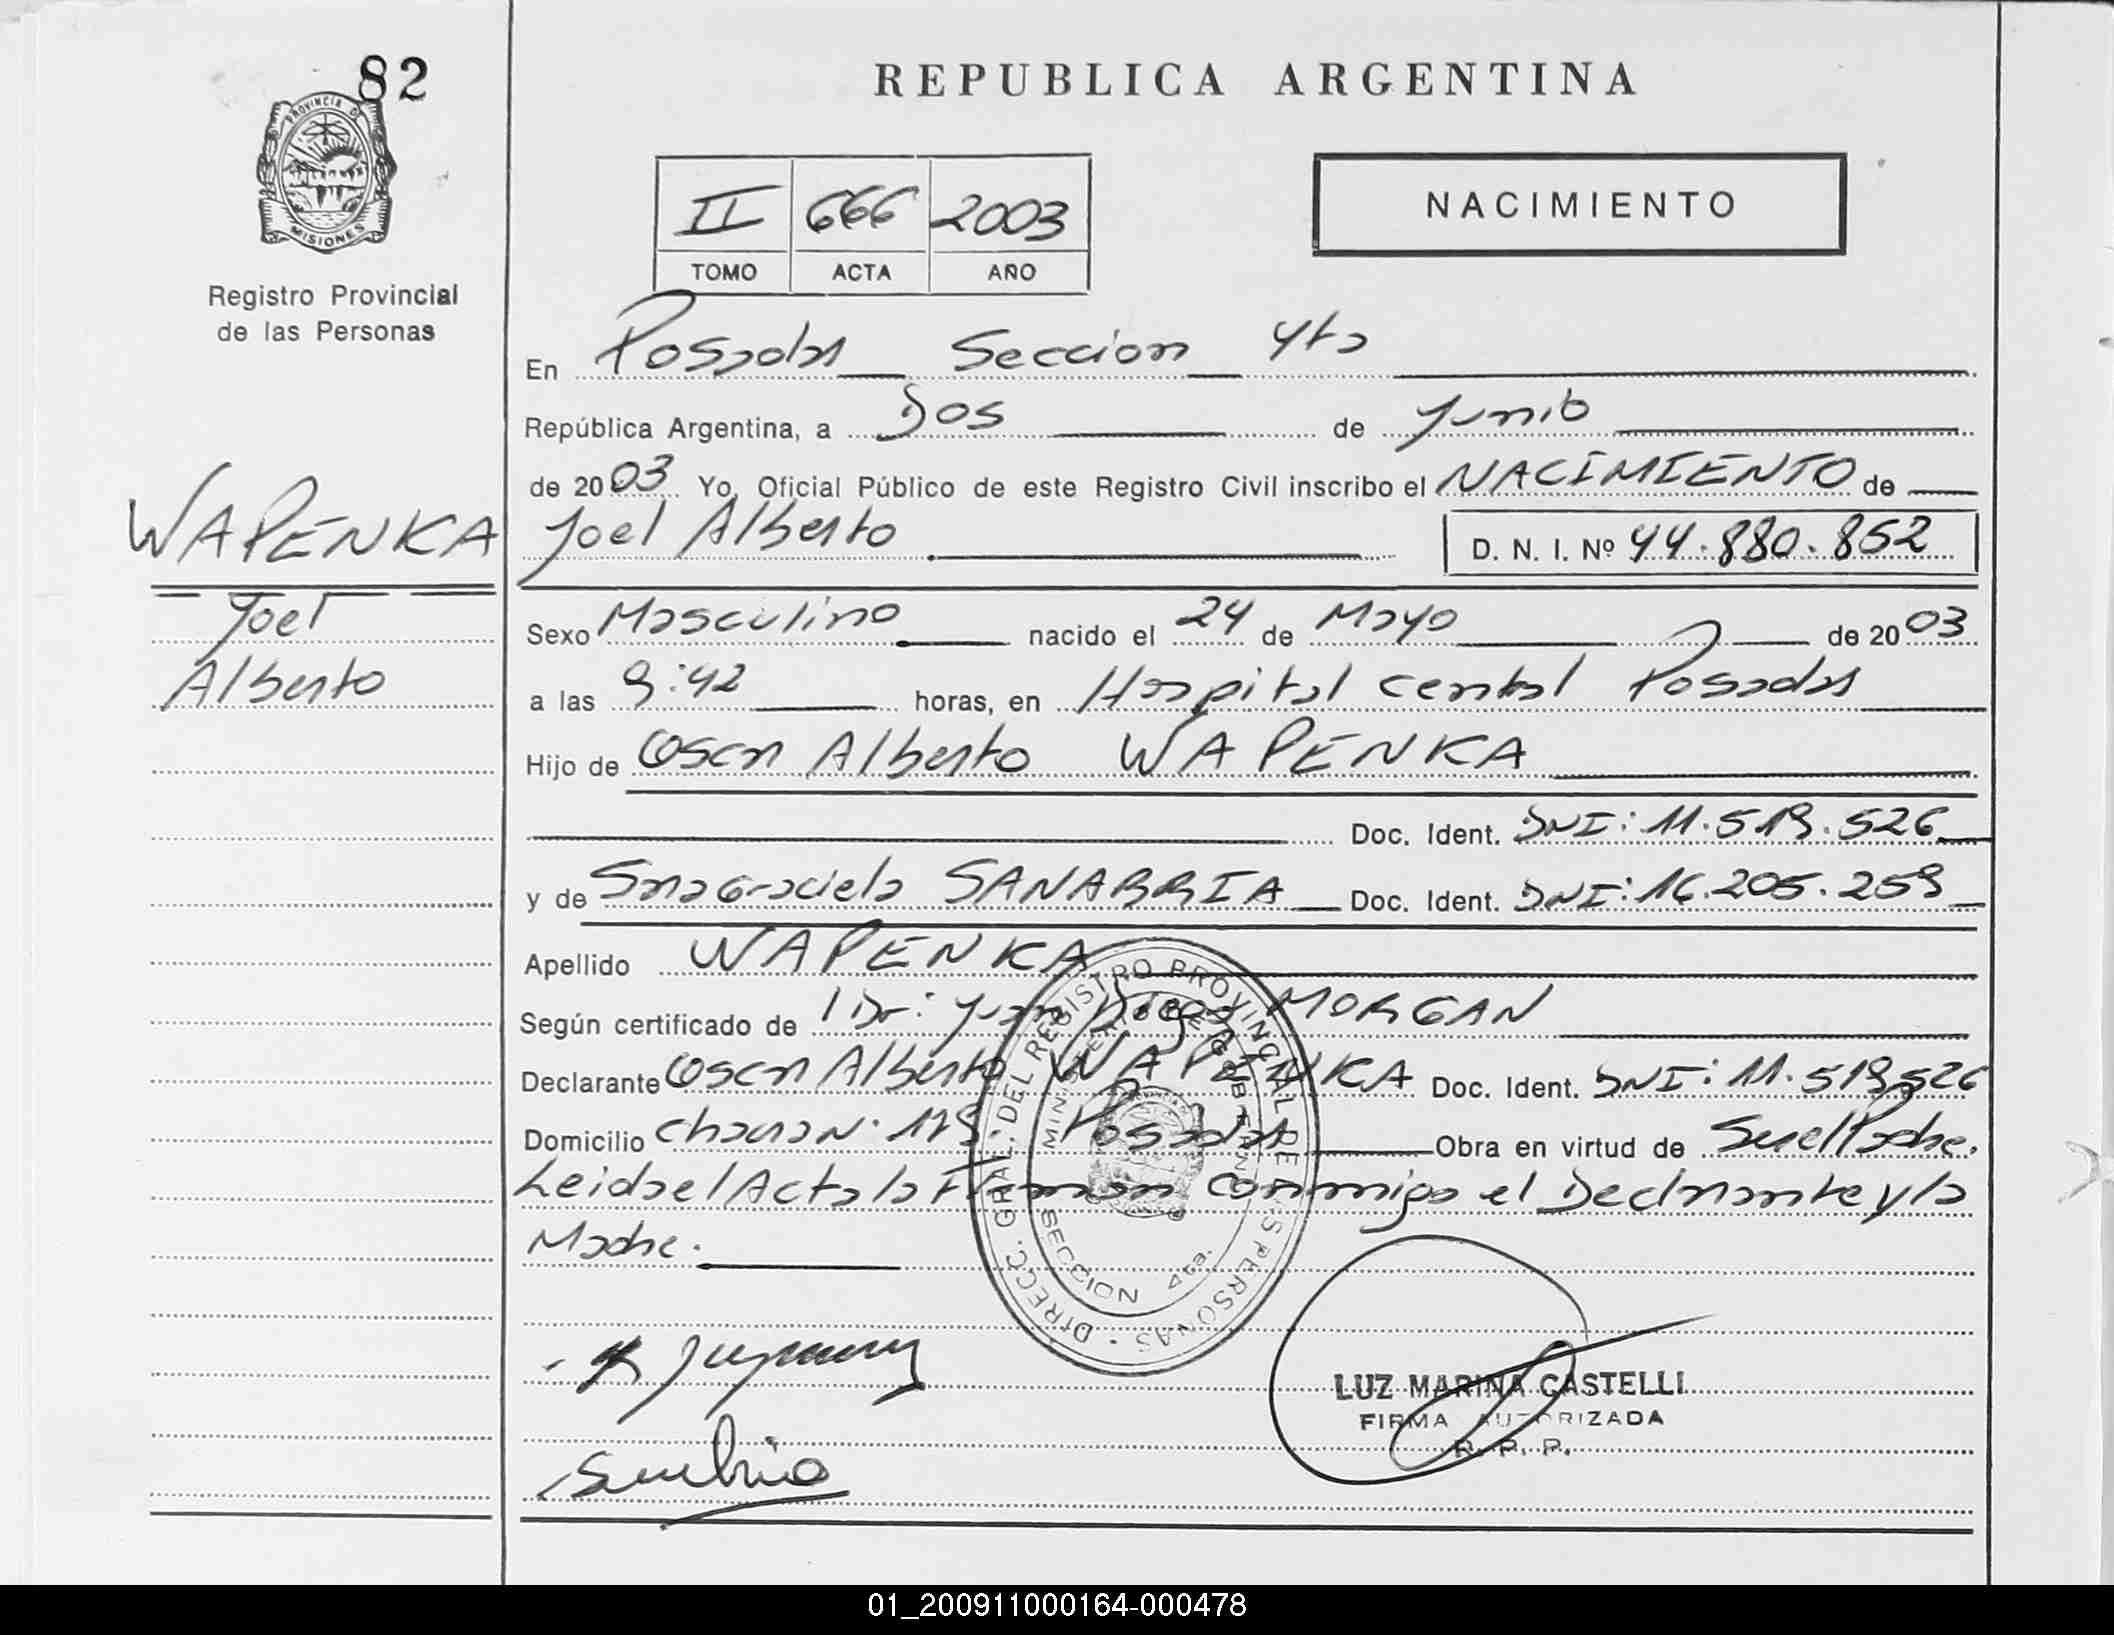 82
PROVINCIA DE
MISIONES
Registro Provincial
de las Personas
WAPENKA
Joel
Alberto
REPUBLICA ARGENTINA
II 666 2003
TOMO ACTA AÑO
NACIMIENTO
En Posadas Seccion 4ta
República Argentina, a Dos de Junio
de 2003 Yo, Oficial Público de este Registro Civil inscribo el NACIMIENTO de
Joel Alberto D. N. I. Nº 44.880.852
Sexo Masculino nacido el 24 de Mayo de 2003
a las 9:42 horas, en Hospital central Posadas
Hijo de Oscar Alberto WAPENKA
Doc. Ident. DNI: 11.519.526
y de Graciela SANABRIA Doc. Ident. DNI: 16.205.259
Apellido WAPENKA
Según certificado de Dr: Juan Diego MORGAN
Declarante Oscar Alberto WAPENKA Doc. Ident. DNI: 11.519.526
Domicilio Posadas Obra en virtud de Ser el Padre.
Leida el Acta la Firman conmigo el Declarante y la
Madre.
DIRECC. GRAL. DEL REGISTRO PROVINCIAL DE LAS PERSONAS
SECCION 4ta.
LUZ MARINA CASTELLI
FIRMA AUTORIZADA
R. P. P.
01_200911000164-000478